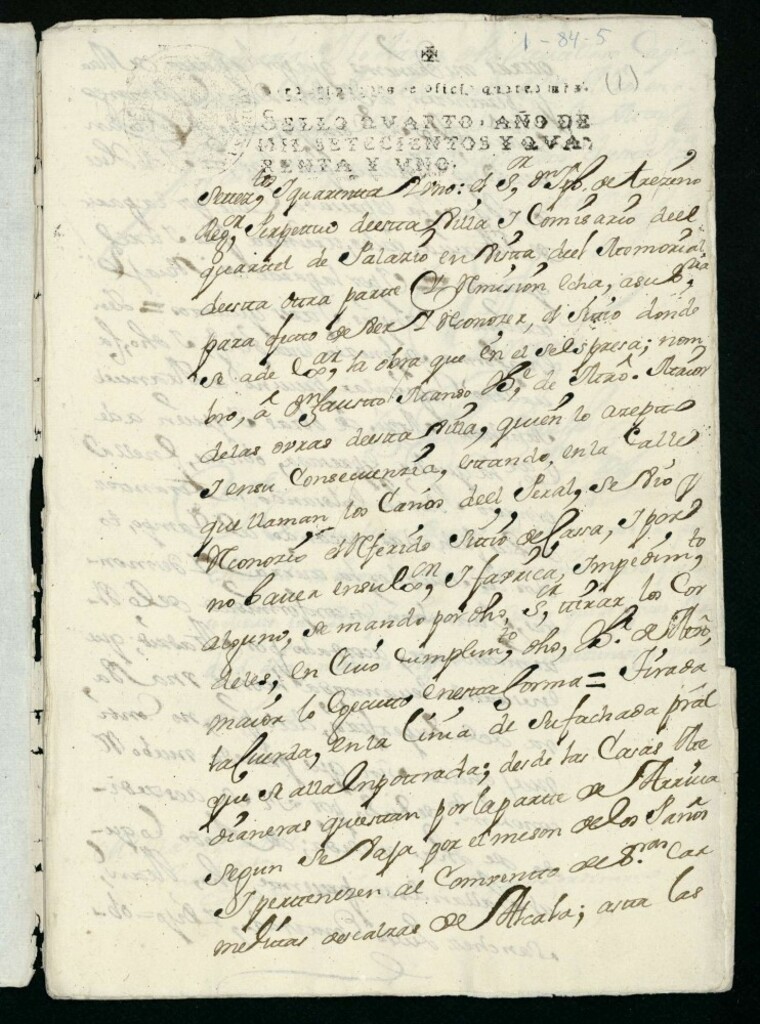 1-84-5
(1)
SELLO QVARTO, AÑO DE
MIL SETECIENTOS Y QVA-
RENTA Y VNO.
Setez,tos y quarenta y Vno: el S,or dn Jph. de Arezeno
Reg,or Perpetuo de esta Villa y Comisario deel
quartel de Palazio en Vista deel Memorial
de esta otra parte y Remision echa, a su S,ria
para efecto de Ver y Reconozer, el sitio donde
se a de Exar, la obra que en el se espresa; nom
bro, a dn Fausto Manso The de Mro. Maior
de las obras de esta Villa, quien lo azepto
y en su Consecuenzia, estando, en la Calle
que llaman los Caños deel Peral, se Vio y
Reconozio el Referido sitio de Cassa, y por
no haver en su Exon, y fabrica, Impedimto
alguno, se mando por dho, S,or tirar los Cor
deles, en Cuio Cumplim,to dho, The de Mro,
maior lo Executo en esta forma = Tirada
la Cuerda, en la Linia de su fachada pral
que se alla Enpotrada; desde las Casas Me
dianeras questan por la parte de Arriva
segun se Vaja por el meson de los Paños
y pertenezen al Convento de Rnas Car
melitas descalzas de Alcala; asta las